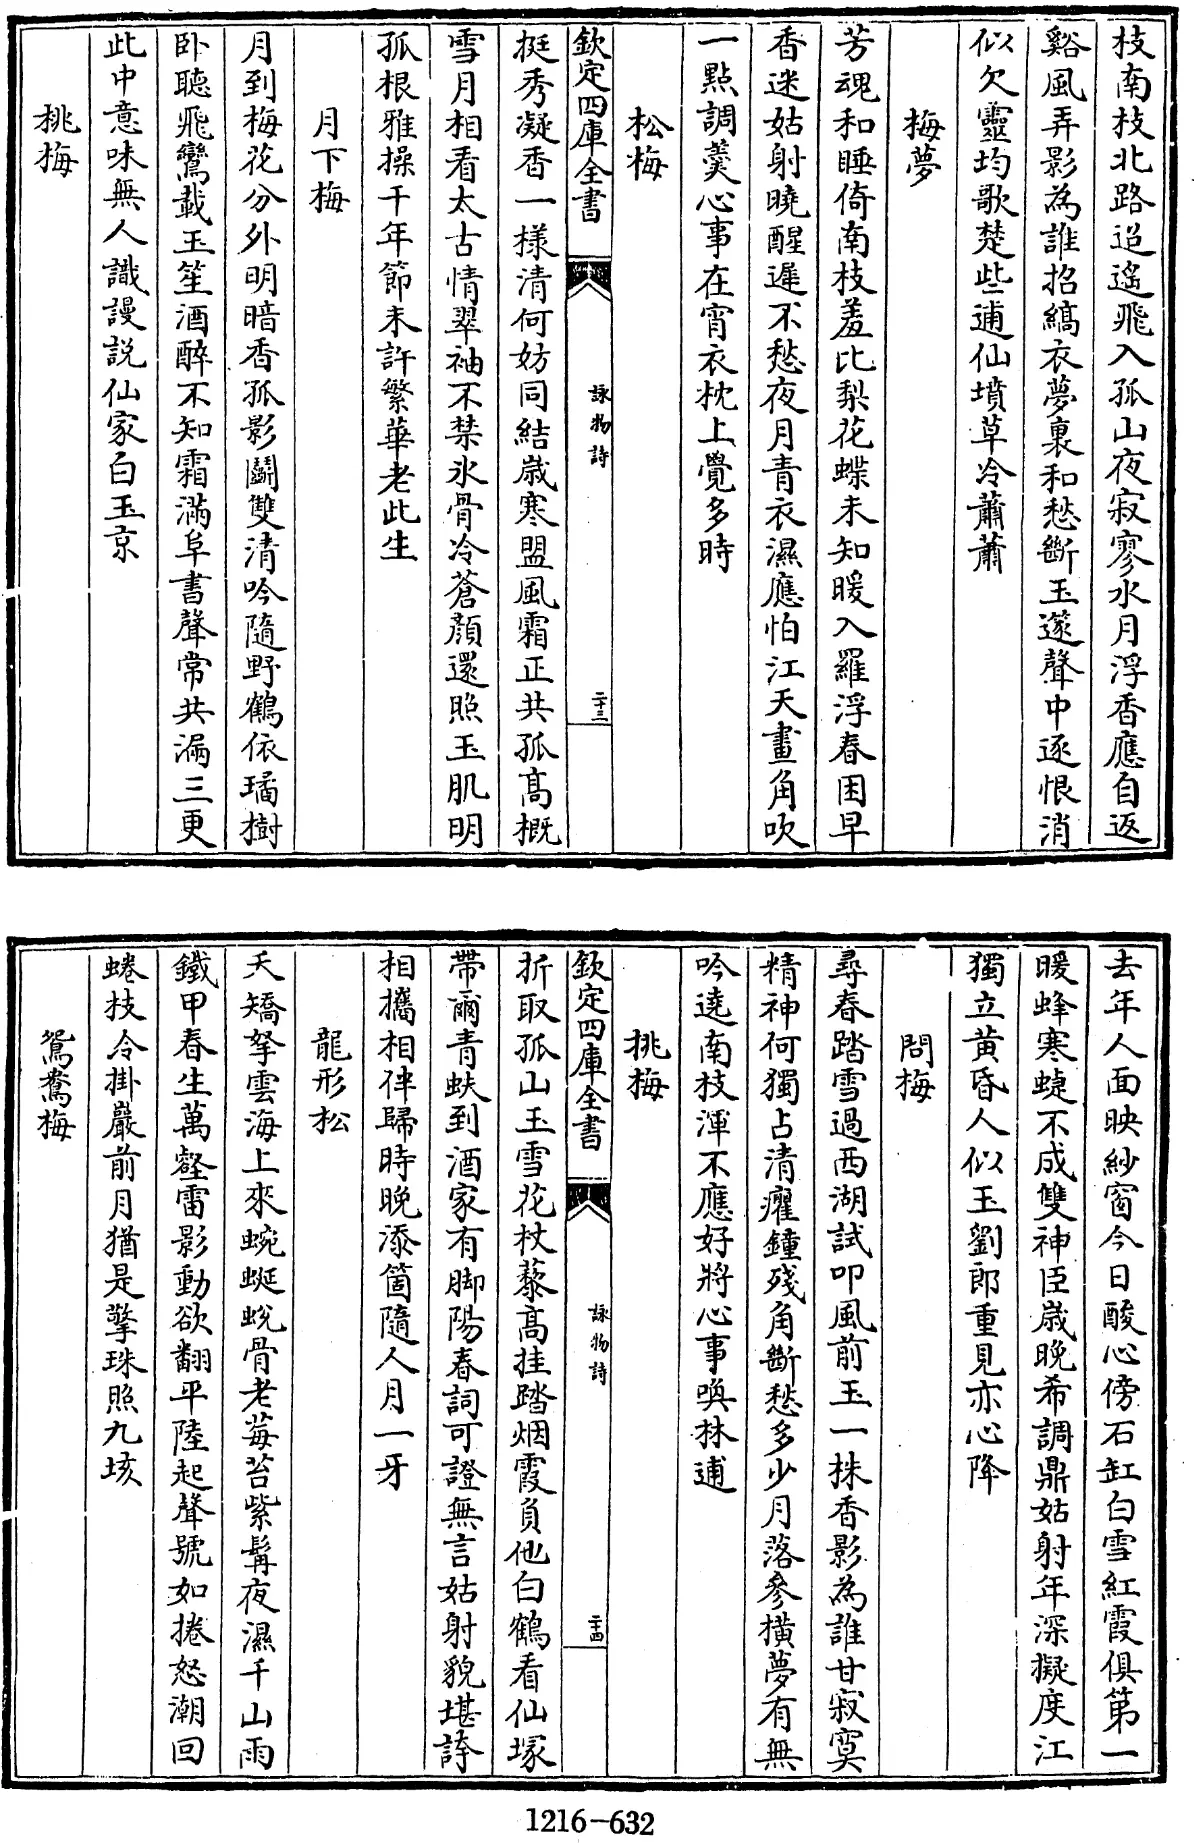 枝南枝北路迢遙飛入孤山夜寂寥水月浮香應自返
谿風弄影為誰招縞衣夢裏和愁斷玉篴聲中逐恨消
似欠靈均歌楚些逋仙墳草冷蕭蕭
梅夢
芳魂和睡倚南枝羞比梨花蝶未知暖入羅浮春困早
香迷姑射曉醒遲不愁夜月青衣濕應怕江天畫角吹
一點調羹心事在宵衣枕上覺多時
松梅
欽定四庫全書
詠物詩
二十三
挺秀凝香一様清何妨同結歲寒盟風霜正共孤高概
雪月相看太古情翠袖不禁氷骨冷蒼顏還照玉肌明
孤根雅操千年節未許繁華老此生
月下梅
月到梅花分外明暗香孤影鬬雙清吟隨野鶴依璚樹
卧聽飛鸞載玉笙酒醉不知霜滿阜書聲常共漏三更
此中意味無人識謾説仙家白玉京
桃梅
去年人面映紗窗今日酸心傍石缸白雪紅霞俱第一
暖蜂寒蜨不成雙神臣歲晚希調鼎姑射年深擬度江
獨立黄昏人似玉劉郎重見亦心降
問梅
尋春踏雪過西湖試叩風前玉一株香影為誰甘寂寞
精神何獨占清癯鐘殘角斷愁多少月落參橫夢有無
吟遶南枝渾不應好將心事喚林逋
挑梅
欽定四庫全書
詠物詩
二十四
折取孤山玉雪花杖藜高挂踏烟霞負他白鶴看仙塚
帶爾青蚨到酒家有脚陽春詞可證無言姑射貌堪誇
相攜相伴歸時晚添箇隨人月一牙
龍形松
夭矯拏雲海上來蜿蜒蜕骨老莓苔紫髯夜濕千山雨
鐵甲春生萬壑雷影動欲翻平陸起聲號如捲怒潮回
蜷枝冷掛巖前月猶是擎珠照九垓
鴛鴦梅
1216-632